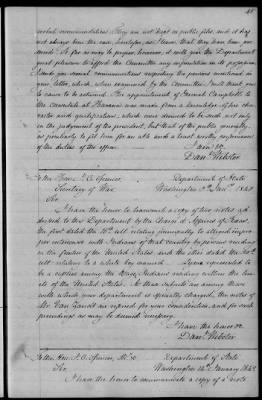 verbal recommendations. They are not kept on public files, and it has
not always been the case, heretofore, as I learn, that they have been pre-
served. So far as may be proper, however, it will give the Department
great pleasure to afford the Committee any information in its possession.
I send you several communications respecting the persons mentioned in
your letter, which, when examined by the Committee, I will thank you
to cause to be returned. The appointment of General Campbell to
the consulate at Havana was made from a knowledge of his cha-
racter and qualifications, which were deemed to be such, not only
in the judgement of the president, but that of the public generally,
as peculiarly to fit him for an able and
of the duties of the office. I am &c
Danl. Webster
To the Honble. J. C. Spencer, Department of State
Secretary of War Washington Jany. 1842
Sir,
I have the honor to transmit a copy of two notes ad-
dressed to this Department by the Chargé d'Affaires of Texas,
the first dated the ulto. relating principally to alleged impro-
per intercourse with Indians of that country by persons residing
on the frontier of the United States and the other dated the
ulto. relating to a white boy named Lyons represented to
be a captive among the Indians residing within the lim-
its of the United States. As these subjects are among those
with which your department is specially charged, the notes of
Mr. are referred for your consideration, and for such
proceedings as may be deemed necessary.
I have the honor &c
Danl. Webster.
To the Hon. J. C. Spencer, &c. &c Department of State
Sir, Washington January 1842
I have the honor to communicate a copy of a note